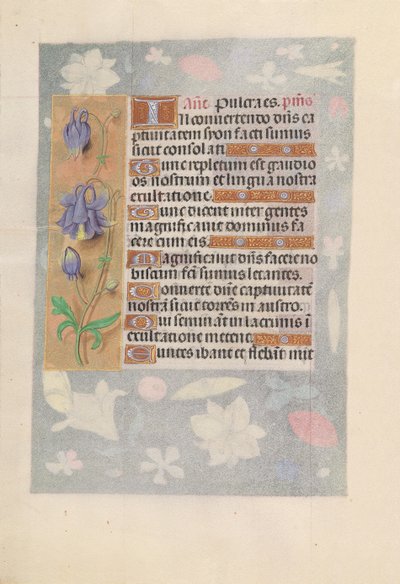 Añe Pulcra es. p̃ms
In convertendo dñs ca
ptivitatem syon facti sumus
sicut consolati
Tunc repletum est gaudio
os nostrum et lingua nostra
exultatione.
Tunc dicent inter gentes
magnificavit dominus fa
cere cum eis.
Magnificavit dñs facere no
biscum fcĩ sumus letantes.
Converte dñe captivitatẽ
nostrã sicut torrẽs in austro.
Qui seminãt in lacrimis ĩ
exultatione metent.
Euntes ibant et flebãt mit